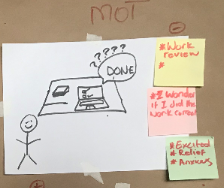 MOT
????
DONE
#Work
review
#
#I Wonder
if I did the
work correct
#Excited
#Relief
#Anxious